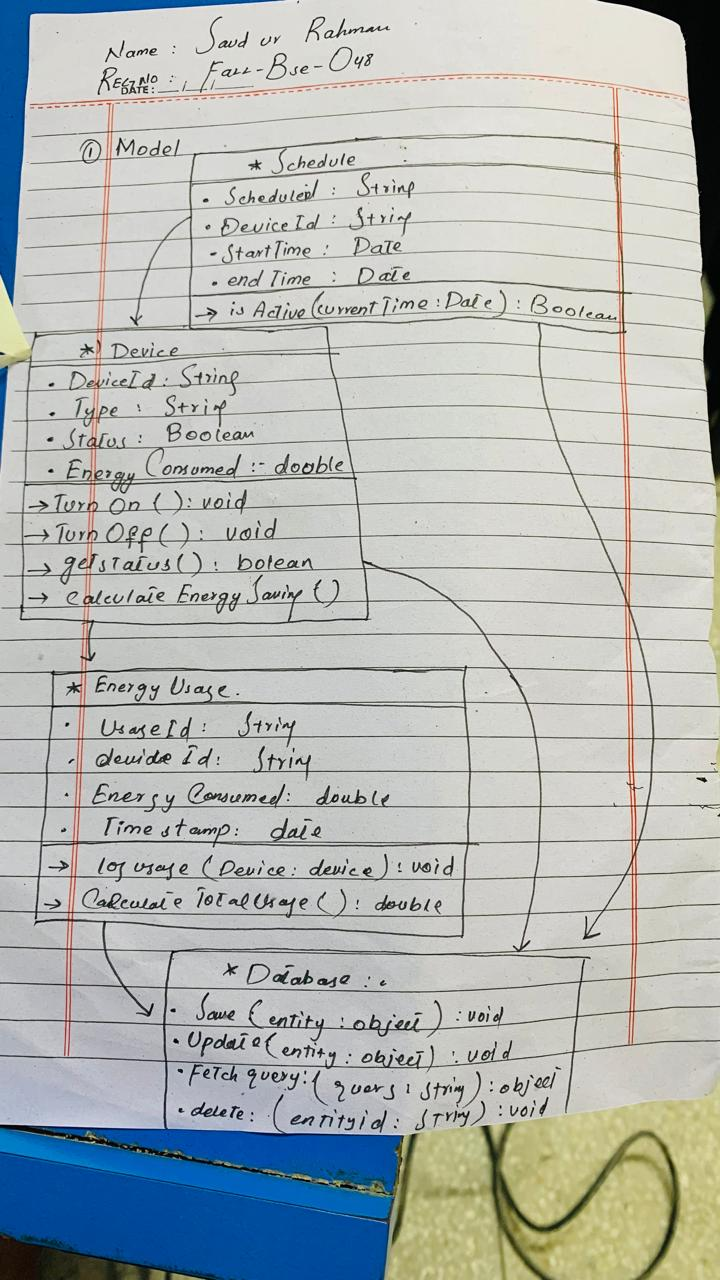 Name : Saud ur Rahman
REG NO : Fall-Bse-048
DATE:
① Model
* Schedule
• Scheduleid : String
• DeviceId : String
• StartTime : Date
• end Time : Date
→ is Active (currentTime : Date) : Boolean
* Device
• DeviceId : String
• Type : String
• Status : Boolean
• Energy Consumed :- double
→ Turn On ( ) : void
→ Turn Off ( ) : void
→ getstatus( ) : bolean
→ Calculate Energy Saving ( )
* Energy Usage.
• UsageId : String
• devide Id : String
• Energy Consumed : double
• Time stamp : date
→ log usage (Device : device) : void
→ Calculate TotalUsage ( ) : double
* Database :.
• Save (entity : object) : void
• Update (entity : object) : void
• Fetch query : ( query : string) : object
• delete : (entityid : String) : void